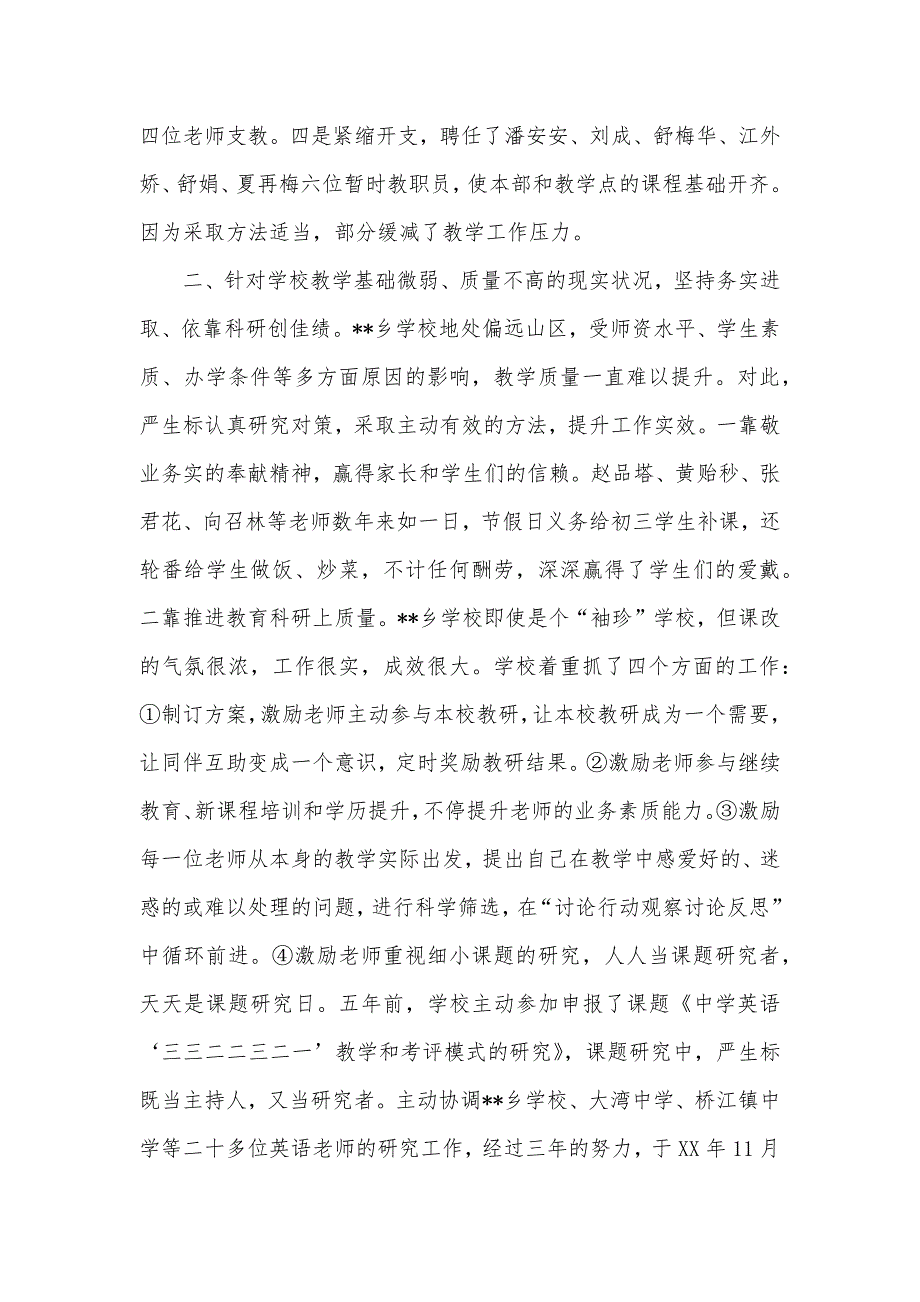 四位老师支教。四是紧缩开支，聘任了潘安安、刘成、舒梅华、江外
娇、舒娟、夏再梅六位暂时教职员，使本部和教学点的课程基础开齐。
因为采取方法适当，部分缓减了教学工作压力。
二、针对学校教学基础微弱、质量不高的现实状况，坚持务实进
取、依靠科研创佳绩。**乡学校地处偏远山区，受师资水平、学生素
质、办学条件等多方面原因的影响，教学质量一直难以提升。对此，
严生标认真研究对策，采取主动有效的方法，提升工作实效。一靠敬
业务实的奉献精神，赢得家长和学生们的信赖。赵品塔、黄贻秒、张
君花、向召林等老师数年来如一日，节假日义务给初三学生补课，还
轮番给学生做饭、炒菜，不计任何酬劳，深深赢得了学生们的爱戴。
二靠推进教育科研上质量。**乡学校即使是个“袖珍”学校，但课改
的气氛很浓，工作很实，成效很大。学校着重抓了四个方面的工作：
①制订方案，激励老师主动参与本校教研，让本校教研成为一个需要，
让同伴互助变成一个意识，定时奖励教研结果。②激励老师参与继续
教育、新课程培训和学历提升，不停提升老师的业务素质能力。③激励
每一位老师从本身的教学实际出发，提出自己在教学中感爱好的、迷
惑的或难以处理的问题，进行科学筛选，在“讨论行动观察讨论反思”
中循环前进。④激励老师重视细小课题的研究，人人当课题研究者，
天天是课题研究日。五年前，学校主动参加申报了课题《中学英语
‘三三二二三二一’教学和考评模式的研究》，课题研究中，严生标
既当主持人，又当研究者。主动协调**乡学校、大湾中学、桥江镇中
学等二十多位英语老师的研究工作，经过三年的努力，于 XX 年 11 月